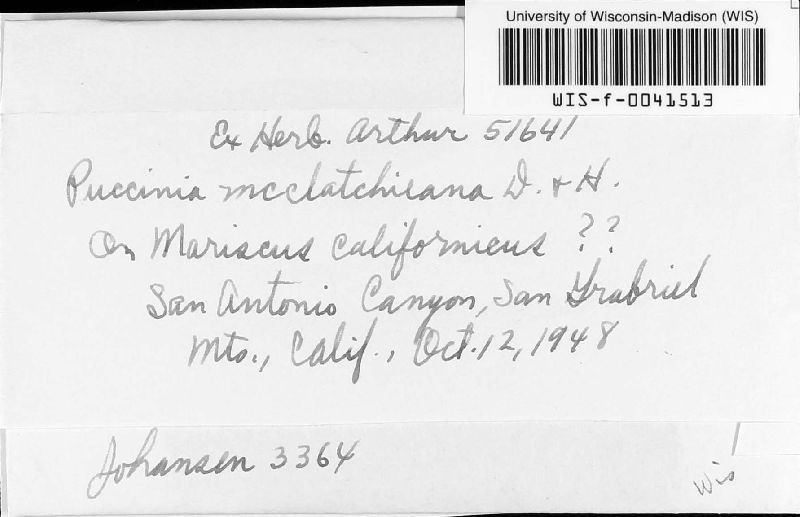 University of Wisconsin-Madison (WIS)
WIS-f-0041513
Ex Herb. Arthur 51641
Puccinia mcclatchieana D. & H.
On Mariscus californicus ??
San Antonio Canyon, San Grabriel
Mts., Calif., Oct. 12, 1948
Johansen 3364
Wis